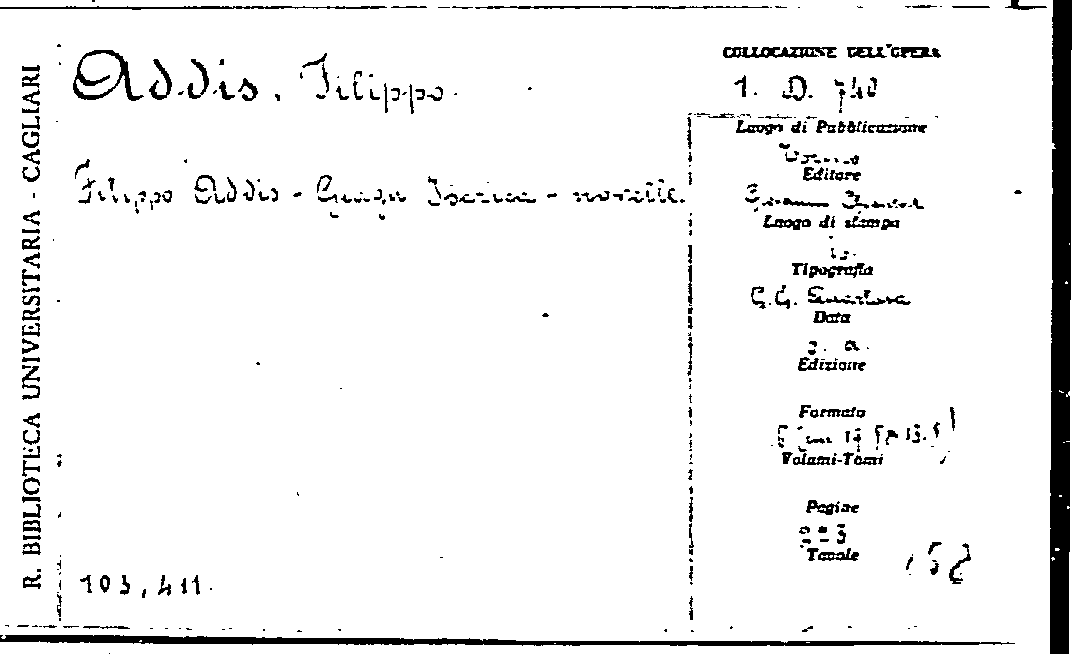 R. BIBLIOTECA UNIVERSITARIA - CAGLIARI
Addis, Filippo.
Filippo Addis - - novelle.
COLLOCAZIONE DELL'OPERA
1. D. 740
Luogo di Pubblicazione
Editore
Luogo di stampa
Tipografia
G.G.
Data
s. a.
Edizione
Formato
Volumi-Tomi
Pagine
223
Tavole
103,411.